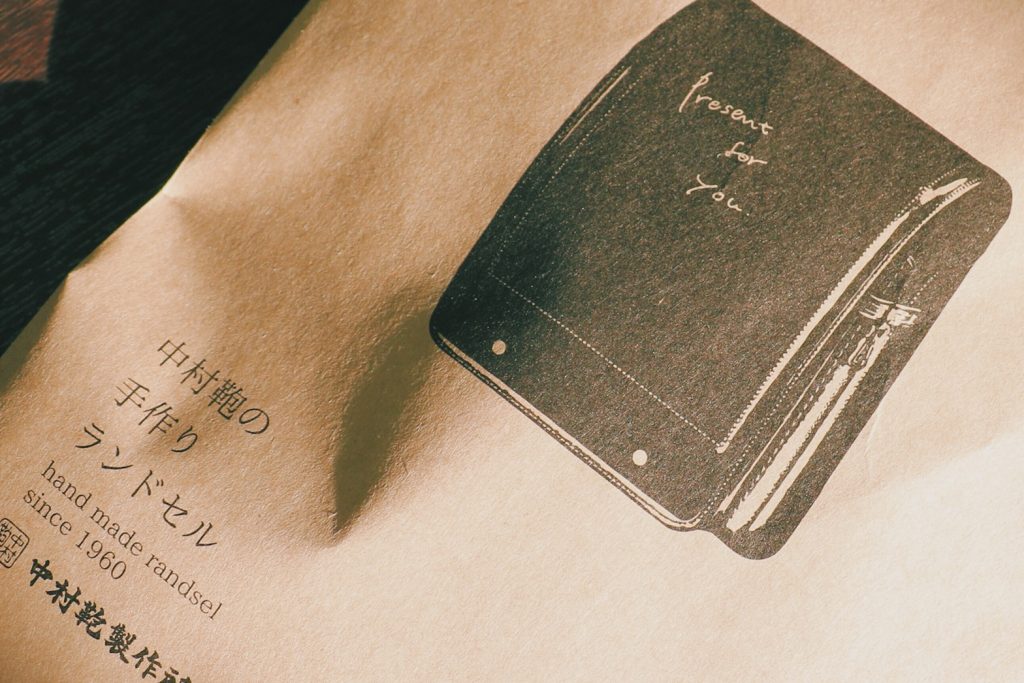 Present
for
You.
中村鞄の
手作り
ランドセル
hand made randsel
since 1960
中村
鞄
中村鞄製作所